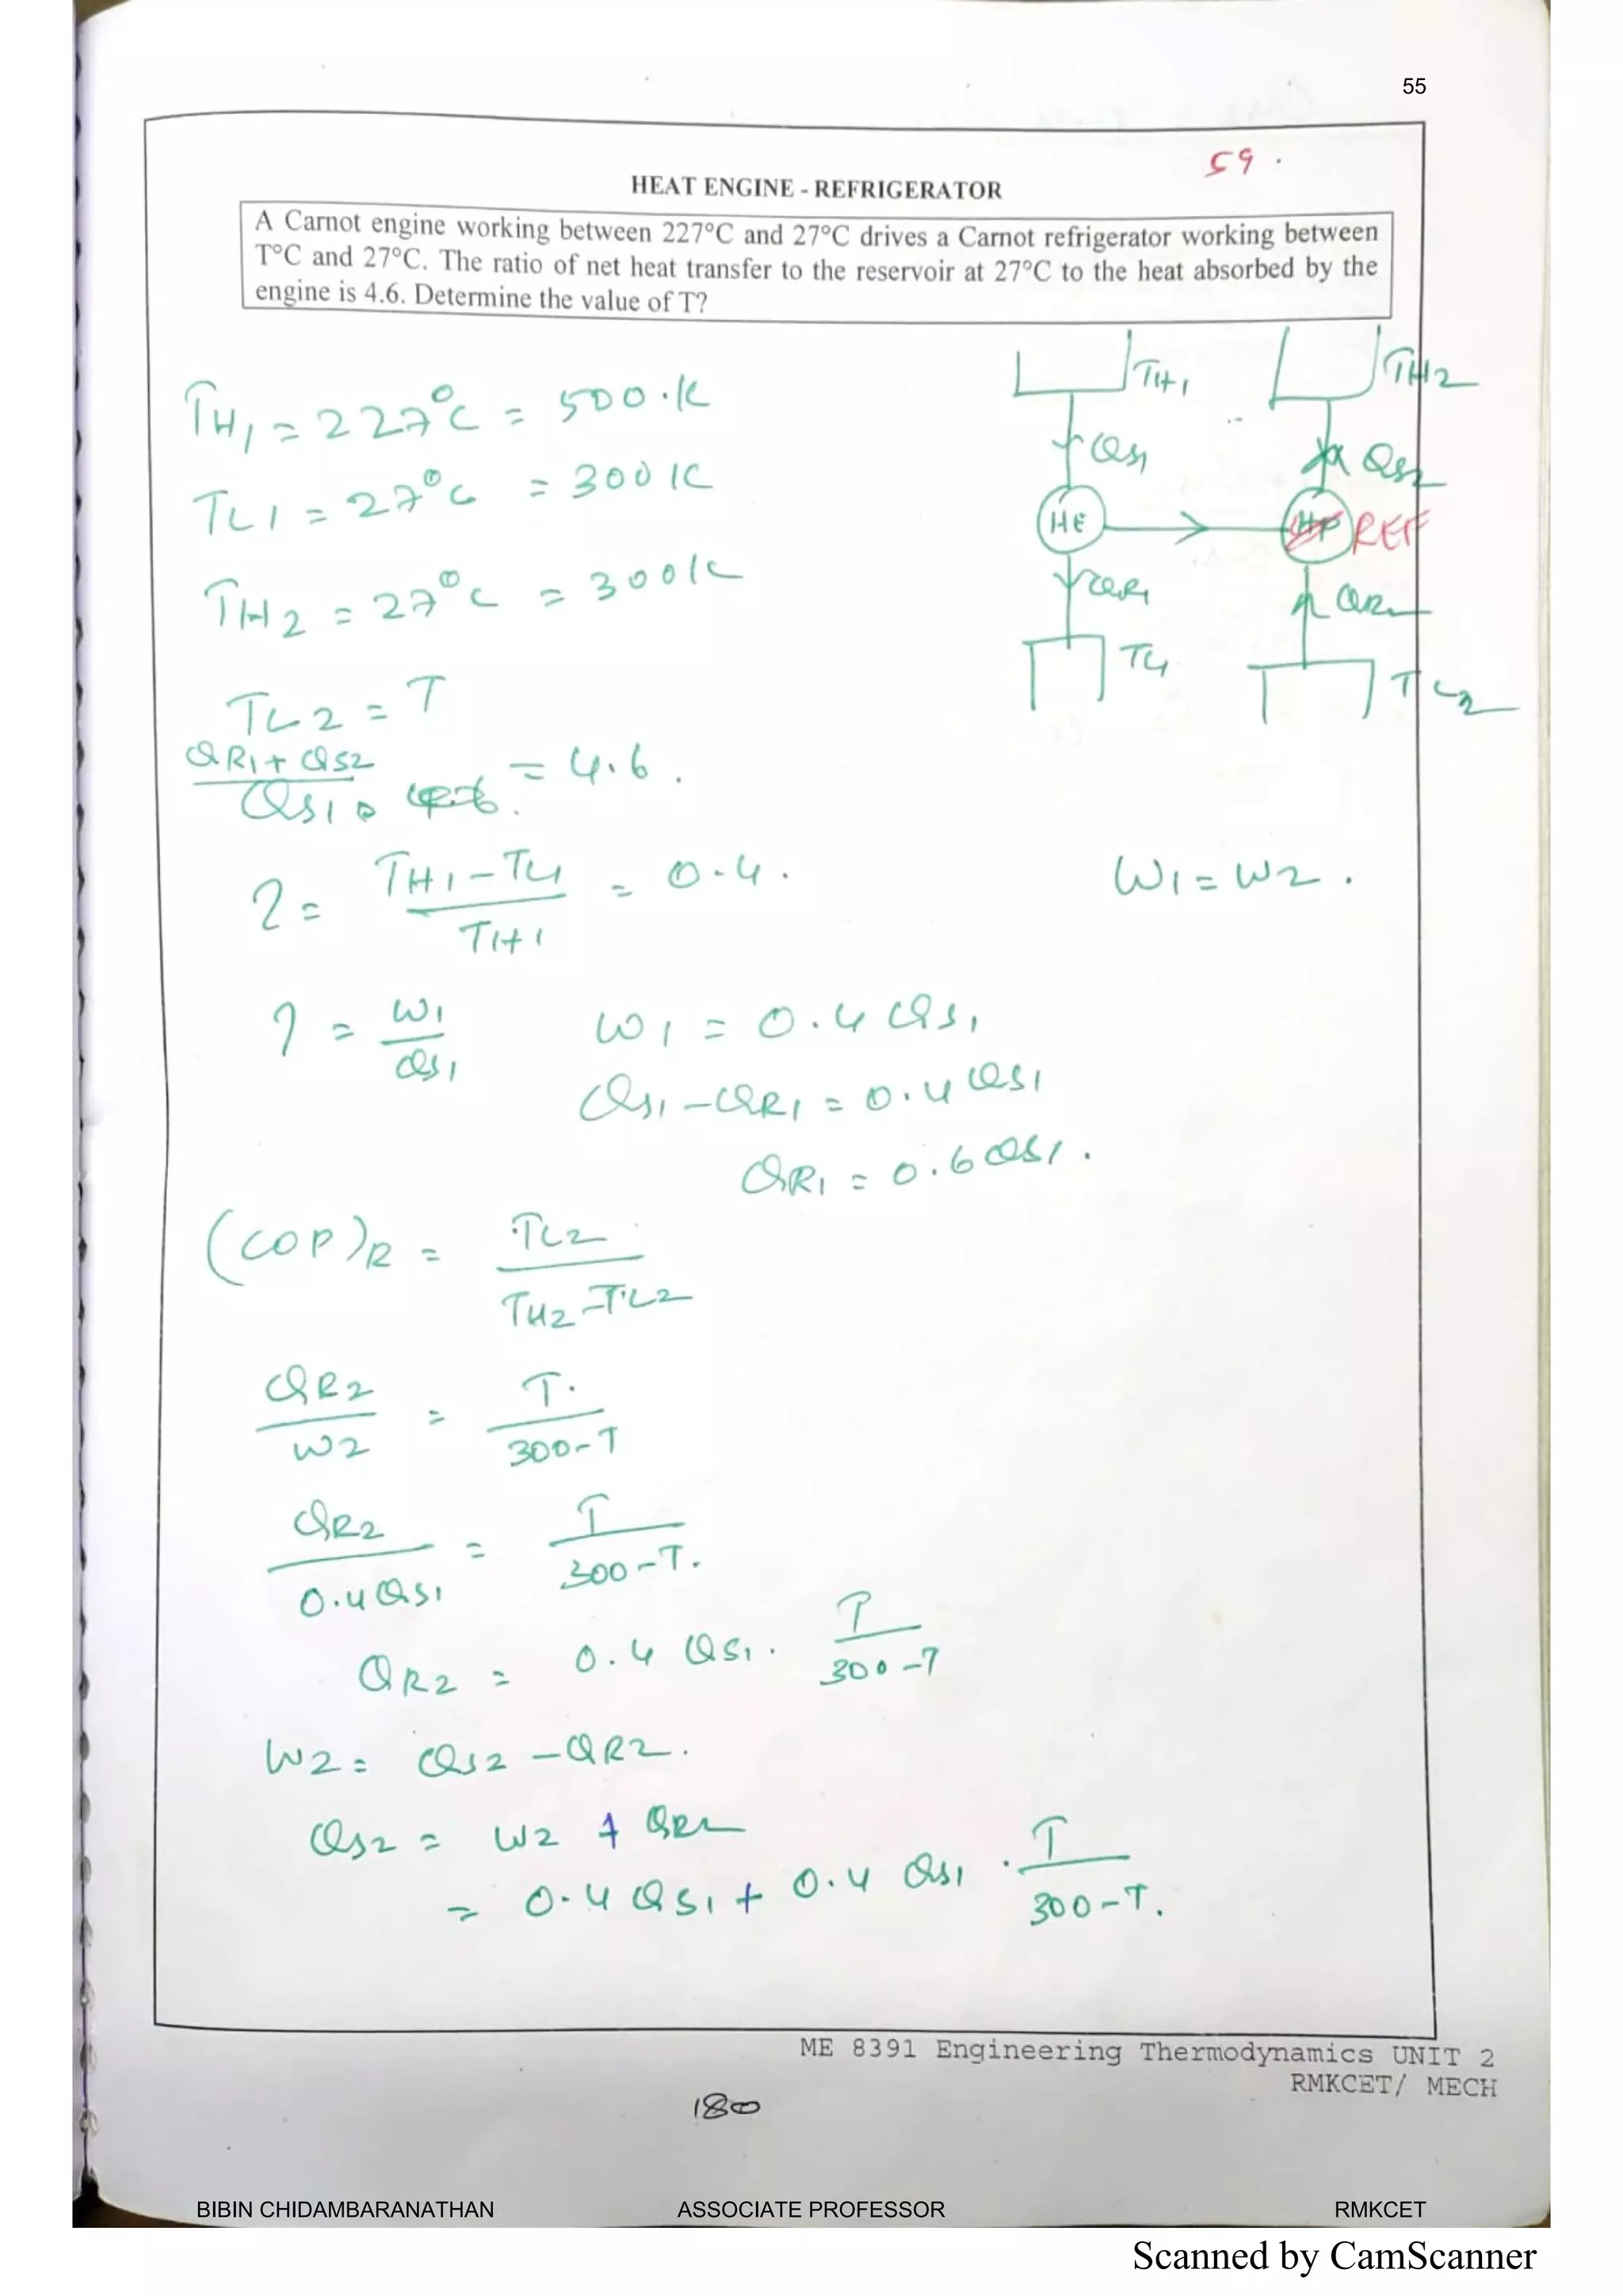 55
59.
HEAT ENGINE - REFRIGERATOR
A Carnot engine working between 227°C and 27°C drives a Carnot refrigerator working between
T°C and 27°C. The ratio of net heat transfer to the reservoir at 27°C to the heat absorbed by the
engine is 4.6. Determine the value of T?
TH1 TH2
QS1 QS2
HE REF
QR1 QR2
TL1 TL2
TH1 = 227°C = 500 K
TL1 = 27°C = 300 K
TH2 = 27°C = 300 K
TL2 = T
QR1 + QS2 / QS1 = 4.6.
η = TH1 - TL1 / TH1 = 0.4. W1 = W2.
η = W1 / QS1 W1 = 0.4 QS1
QS1 - QR1 = 0.4 QS1
QR1 = 0.6 QS1.
(COP)R = TL2 / TH2 - TL2
QR2 / W2 = T / 300-T
QR2 / 0.4 QS1 = T / 300-T.
QR2 = 0.4 QS1 . T / 300-T
W2 = QS2 - QR2.
QS2 = W2 + QR2
= 0.4 QS1 + 0.4 QS1 . T / 300-T.
ME 8391 Engineering Thermodynamics UNIT 2
RMKCET/ MECH
180
BIBIN CHIDAMBARANATHAN ASSOCIATE PROFESSOR RMKCET
Scanned by CamScanner